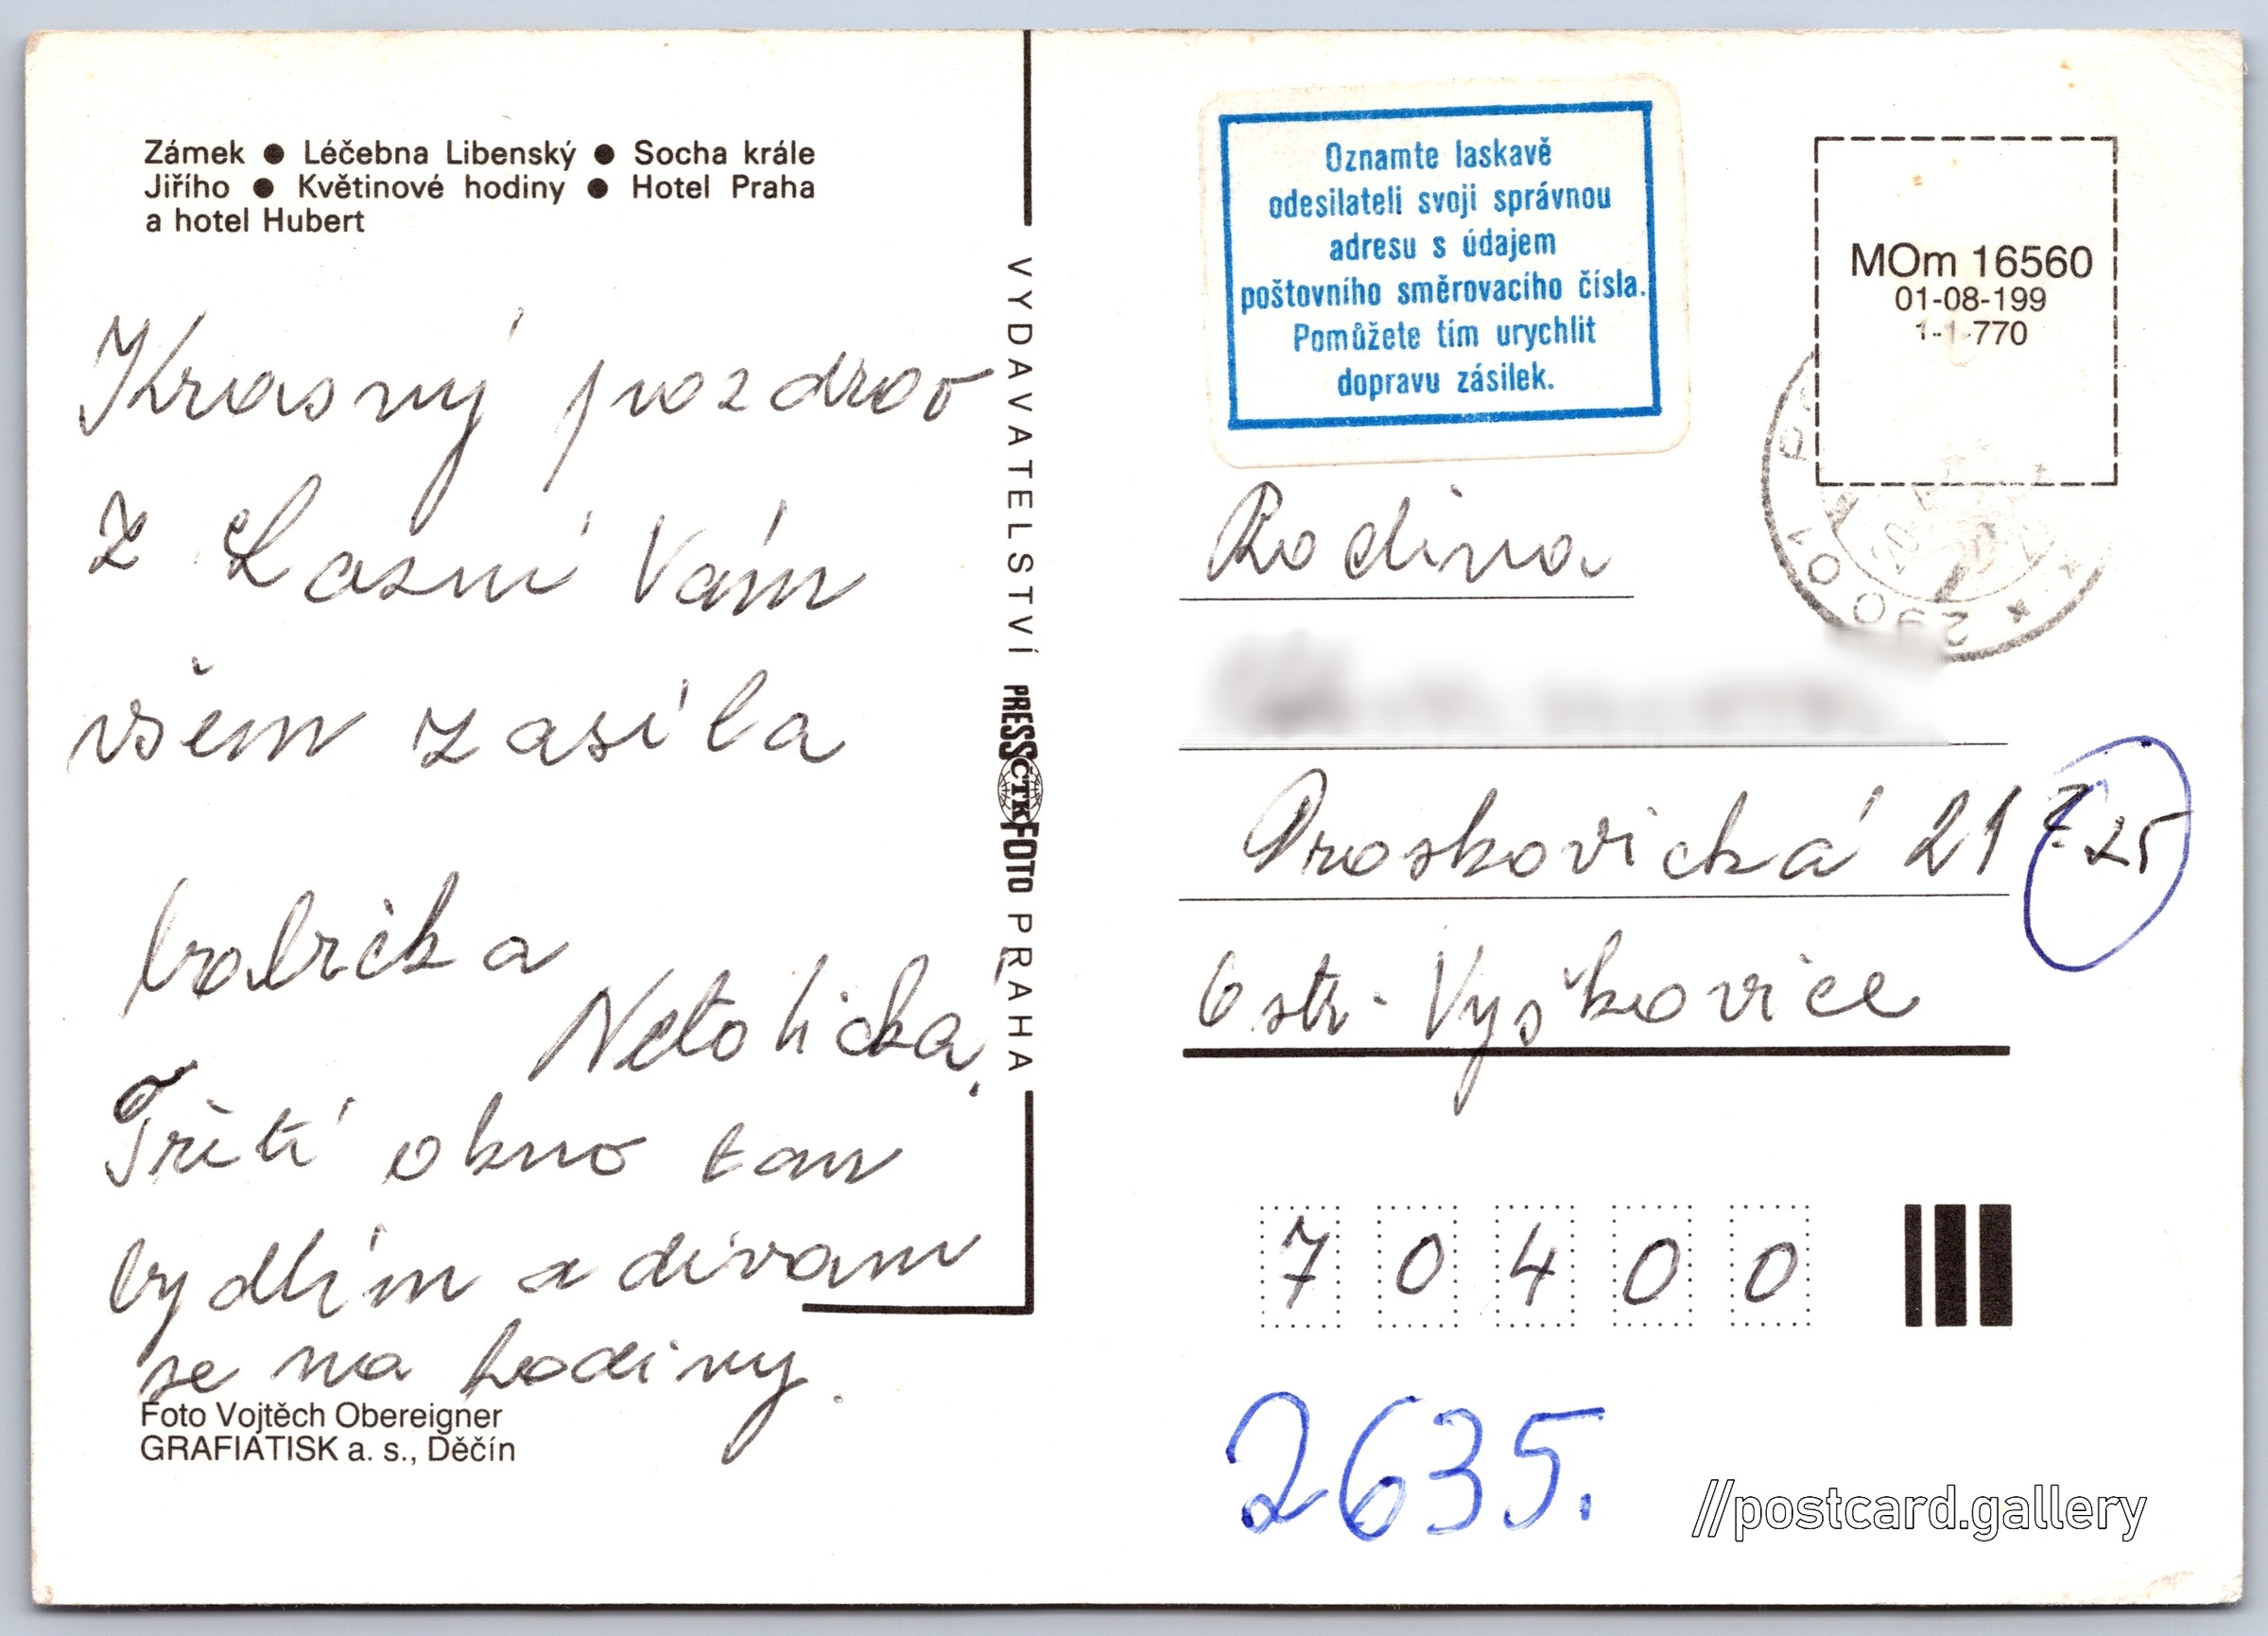 Zámek ● Léčebna Libenský ● Socha krále
Jiřího ● Květinové hodiny ● Hotel Praha
a hotel Hubert
Krasný pozdrav
z Lázní Vám
všem zasíla
babička
Netolická.
Třetí okno tam
bydlím a divam
se na hodiny.
Foto Vojtěch Obereigner
GRAFIATISK a. s., Děčín
VYDAVATELSTVÍ PRESSFOTO PRAHA
ČTK
Oznamte laskavě
odesilateli svoji správnou
adresu s údajem
poštovního směrovacího čísla.
Pomůžete tím urychlit
dopravu zásilek.
MOm 16560
01-08-199
1-1-770
290 01
Rodina
Proskovická 21 725
Ostr. Vyškovice
7 0 4 0 0
2635.
//postcard.gallery